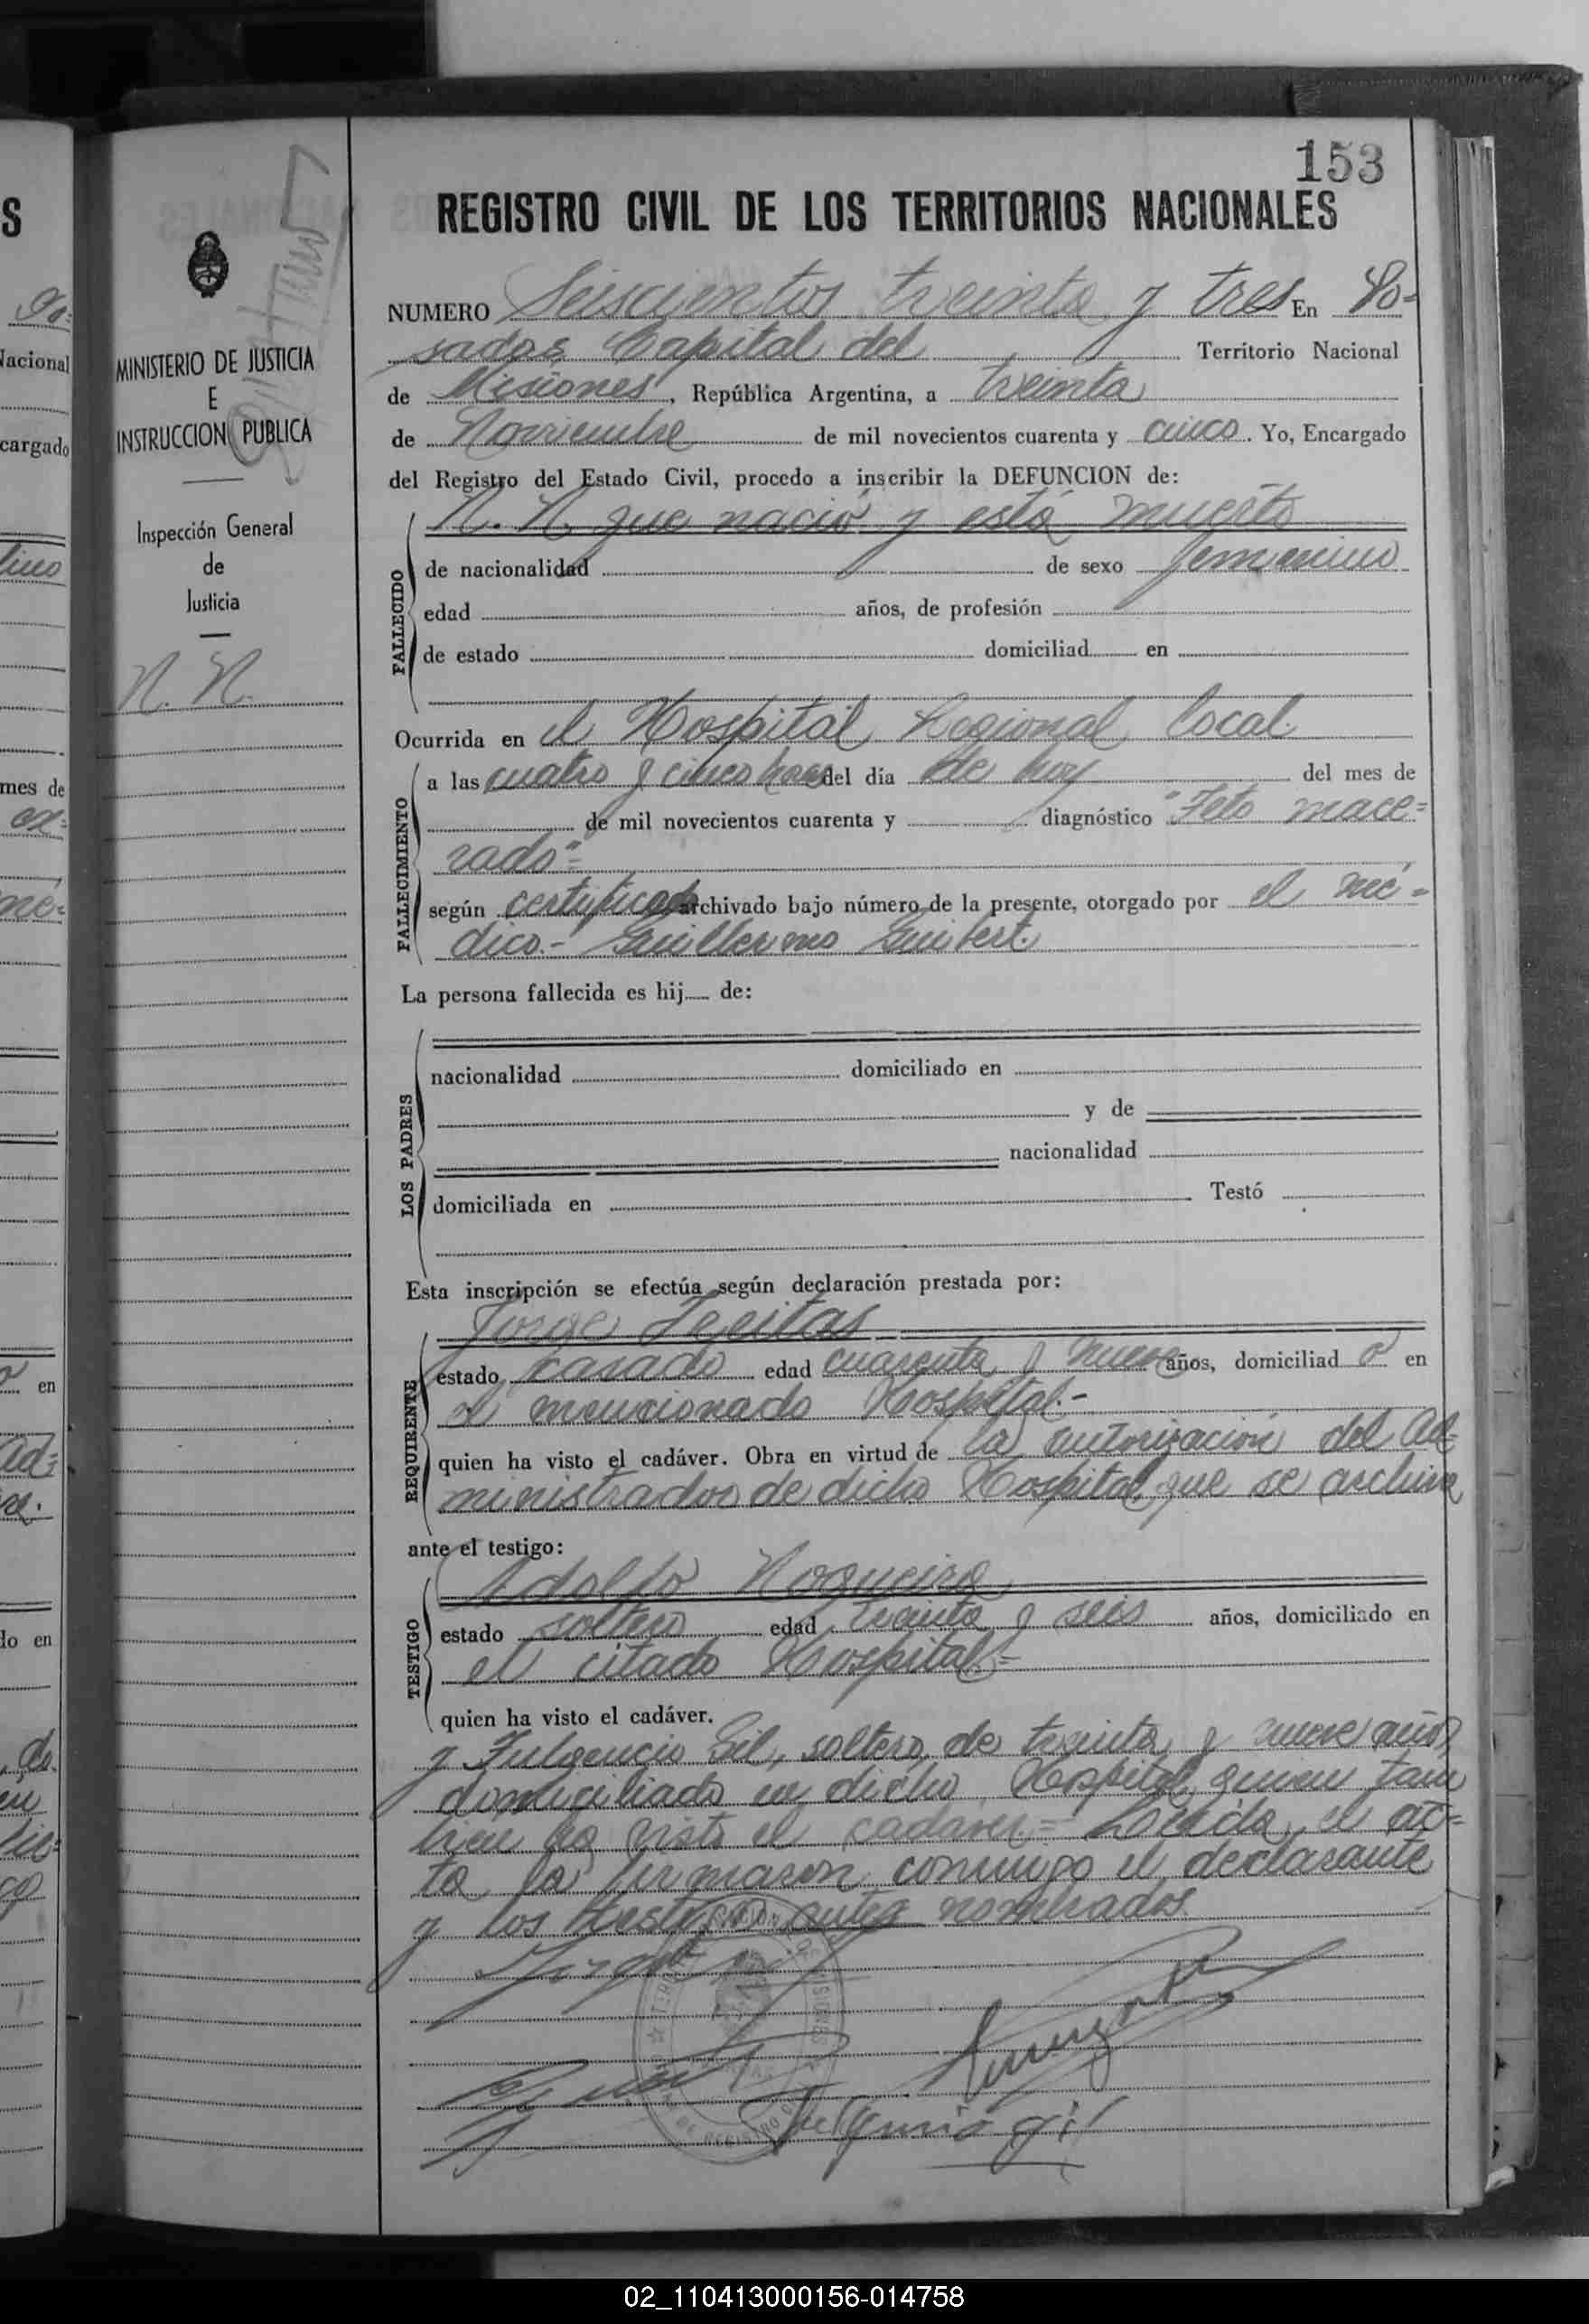 153
REGISTRO CIVIL DE LOS TERRITORIOS NACIONALES
MINISTERIO DE JUSTICIA
E
INSTRUCCION PUBLICA
Inspección General
de
Justicia
N. N.
NUMERO Seiscientos treinta y tres En Po-
sadas Capital del Territorio Nacional
de Misiones, República Argentina, a treinta
de Noviembre de mil novecientos cuarenta y cinco. Yo, Encargado
del Registro del Estado Civil, procedo a inscribir la DEFUNCION de:
N. N. que nació y está muerto
FALLECIDO
de nacionalidad de sexo femenino
edad años, de profesión
de estado domiciliad en
Ocurrida en el Hospital Regional local
FALLECIMIENTO
a las cuatro y cinco horas del día de hoy del mes de
de mil novecientos cuarenta y diagnóstico "Feto mace=
rado"=
según certificado archivado bajo número de la presente, otorgado por el mé-
dico.- Guillermo Guibert.
La persona fallecida es hij de:
LOS PADRES
nacionalidad domiciliado en
y de
nacionalidad
domiciliada en Testó
Esta inscripción se efectúa según declaración prestada por:
Jorge Freitas
REQUIRENTE
estado casado edad cuarenta y nueve años, domiciliad o en
el mencionado Hospital.-
quien ha visto el cadáver. Obra en virtud de la autorización del Ad=
ministrador de dicho Hospital que se archiva
ante el testigo:
Adolfo Nogueira
TESTIGO
estado soltero edad treinta y seis años, domiciliado en
el citado Hospital=
quien ha visto el cadáver.
y Fulgencio Gil, soltero, de treinta y nueve años,
domiciliado en dicho Hospital, quien tam
bien ha visto el cadáver.= Leída el ac=
ta la firmaron conmigo el declarante
y los testigos antes nombrados.
Fulgencio gil
02_110413000156-014758